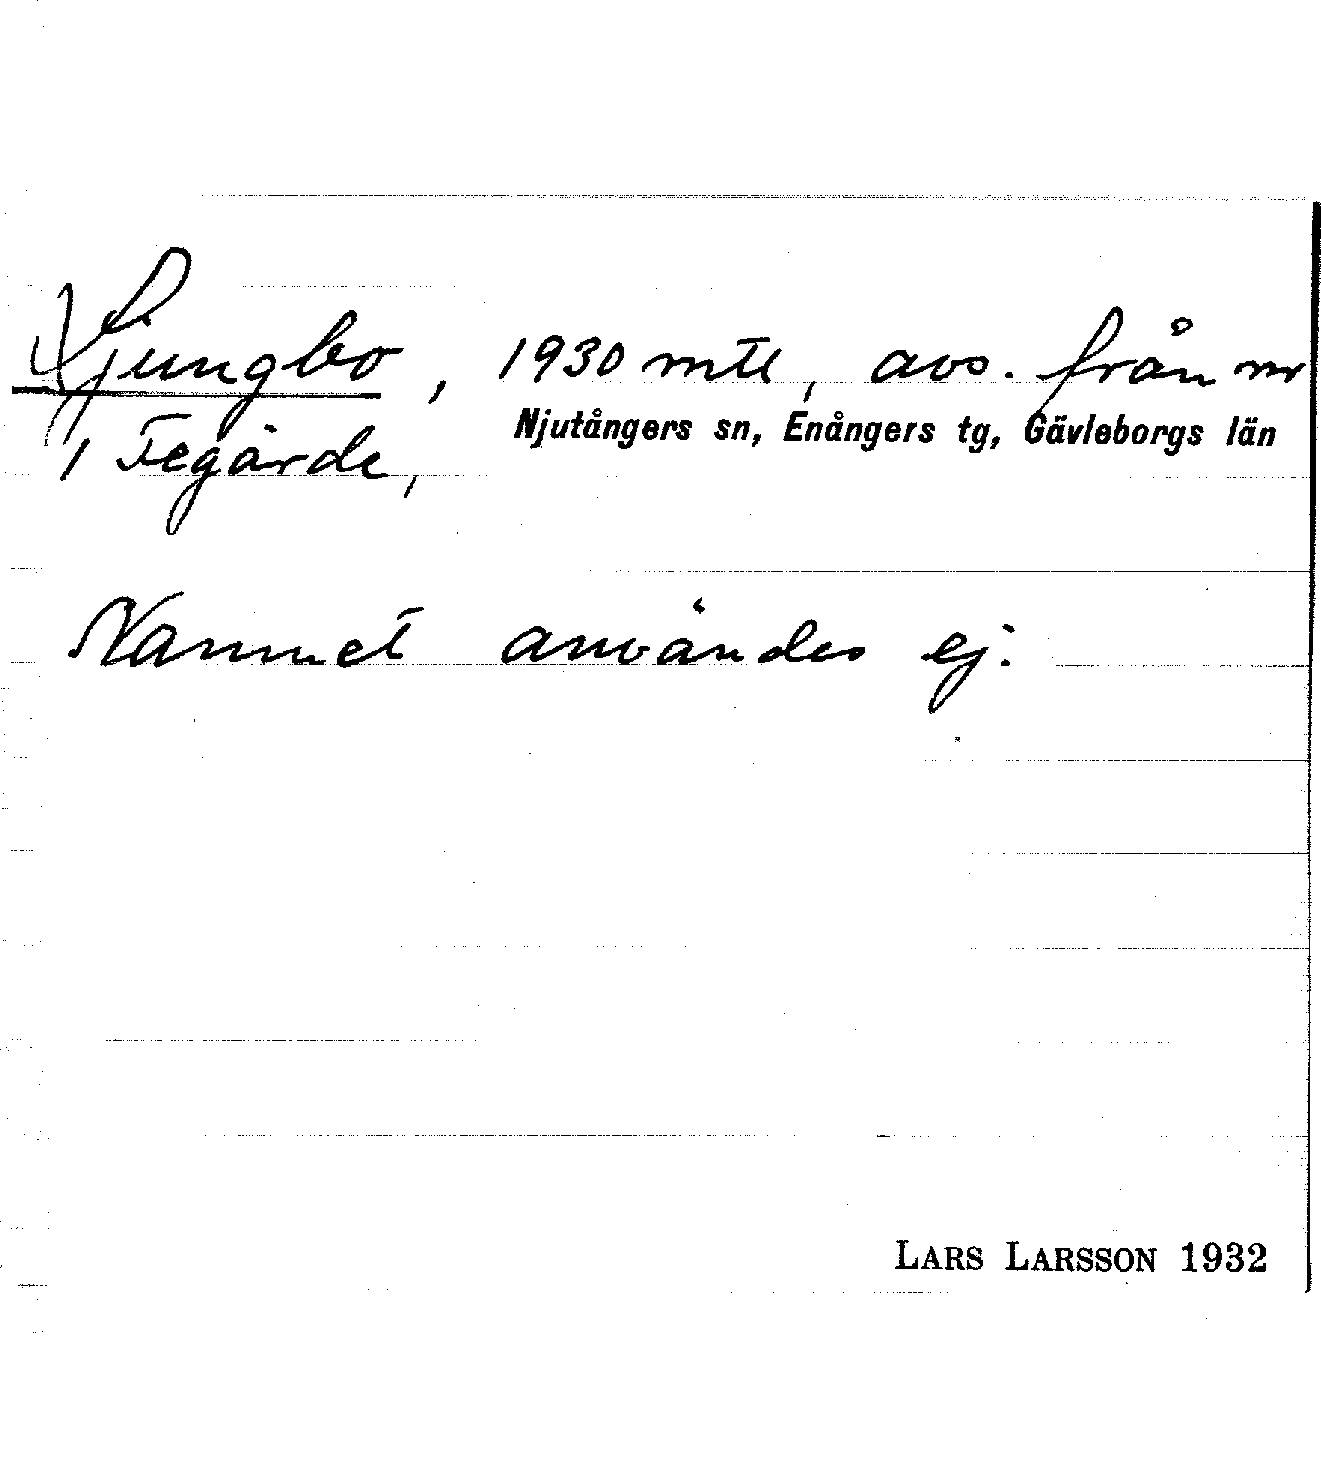 Ljungbo, 1930 mtl, avs. från nr
Njutångers sn, Enångers tg, Gävleborgs län
1 Tegärde,
Namnet användes ej.
LARS LARSSON 1932